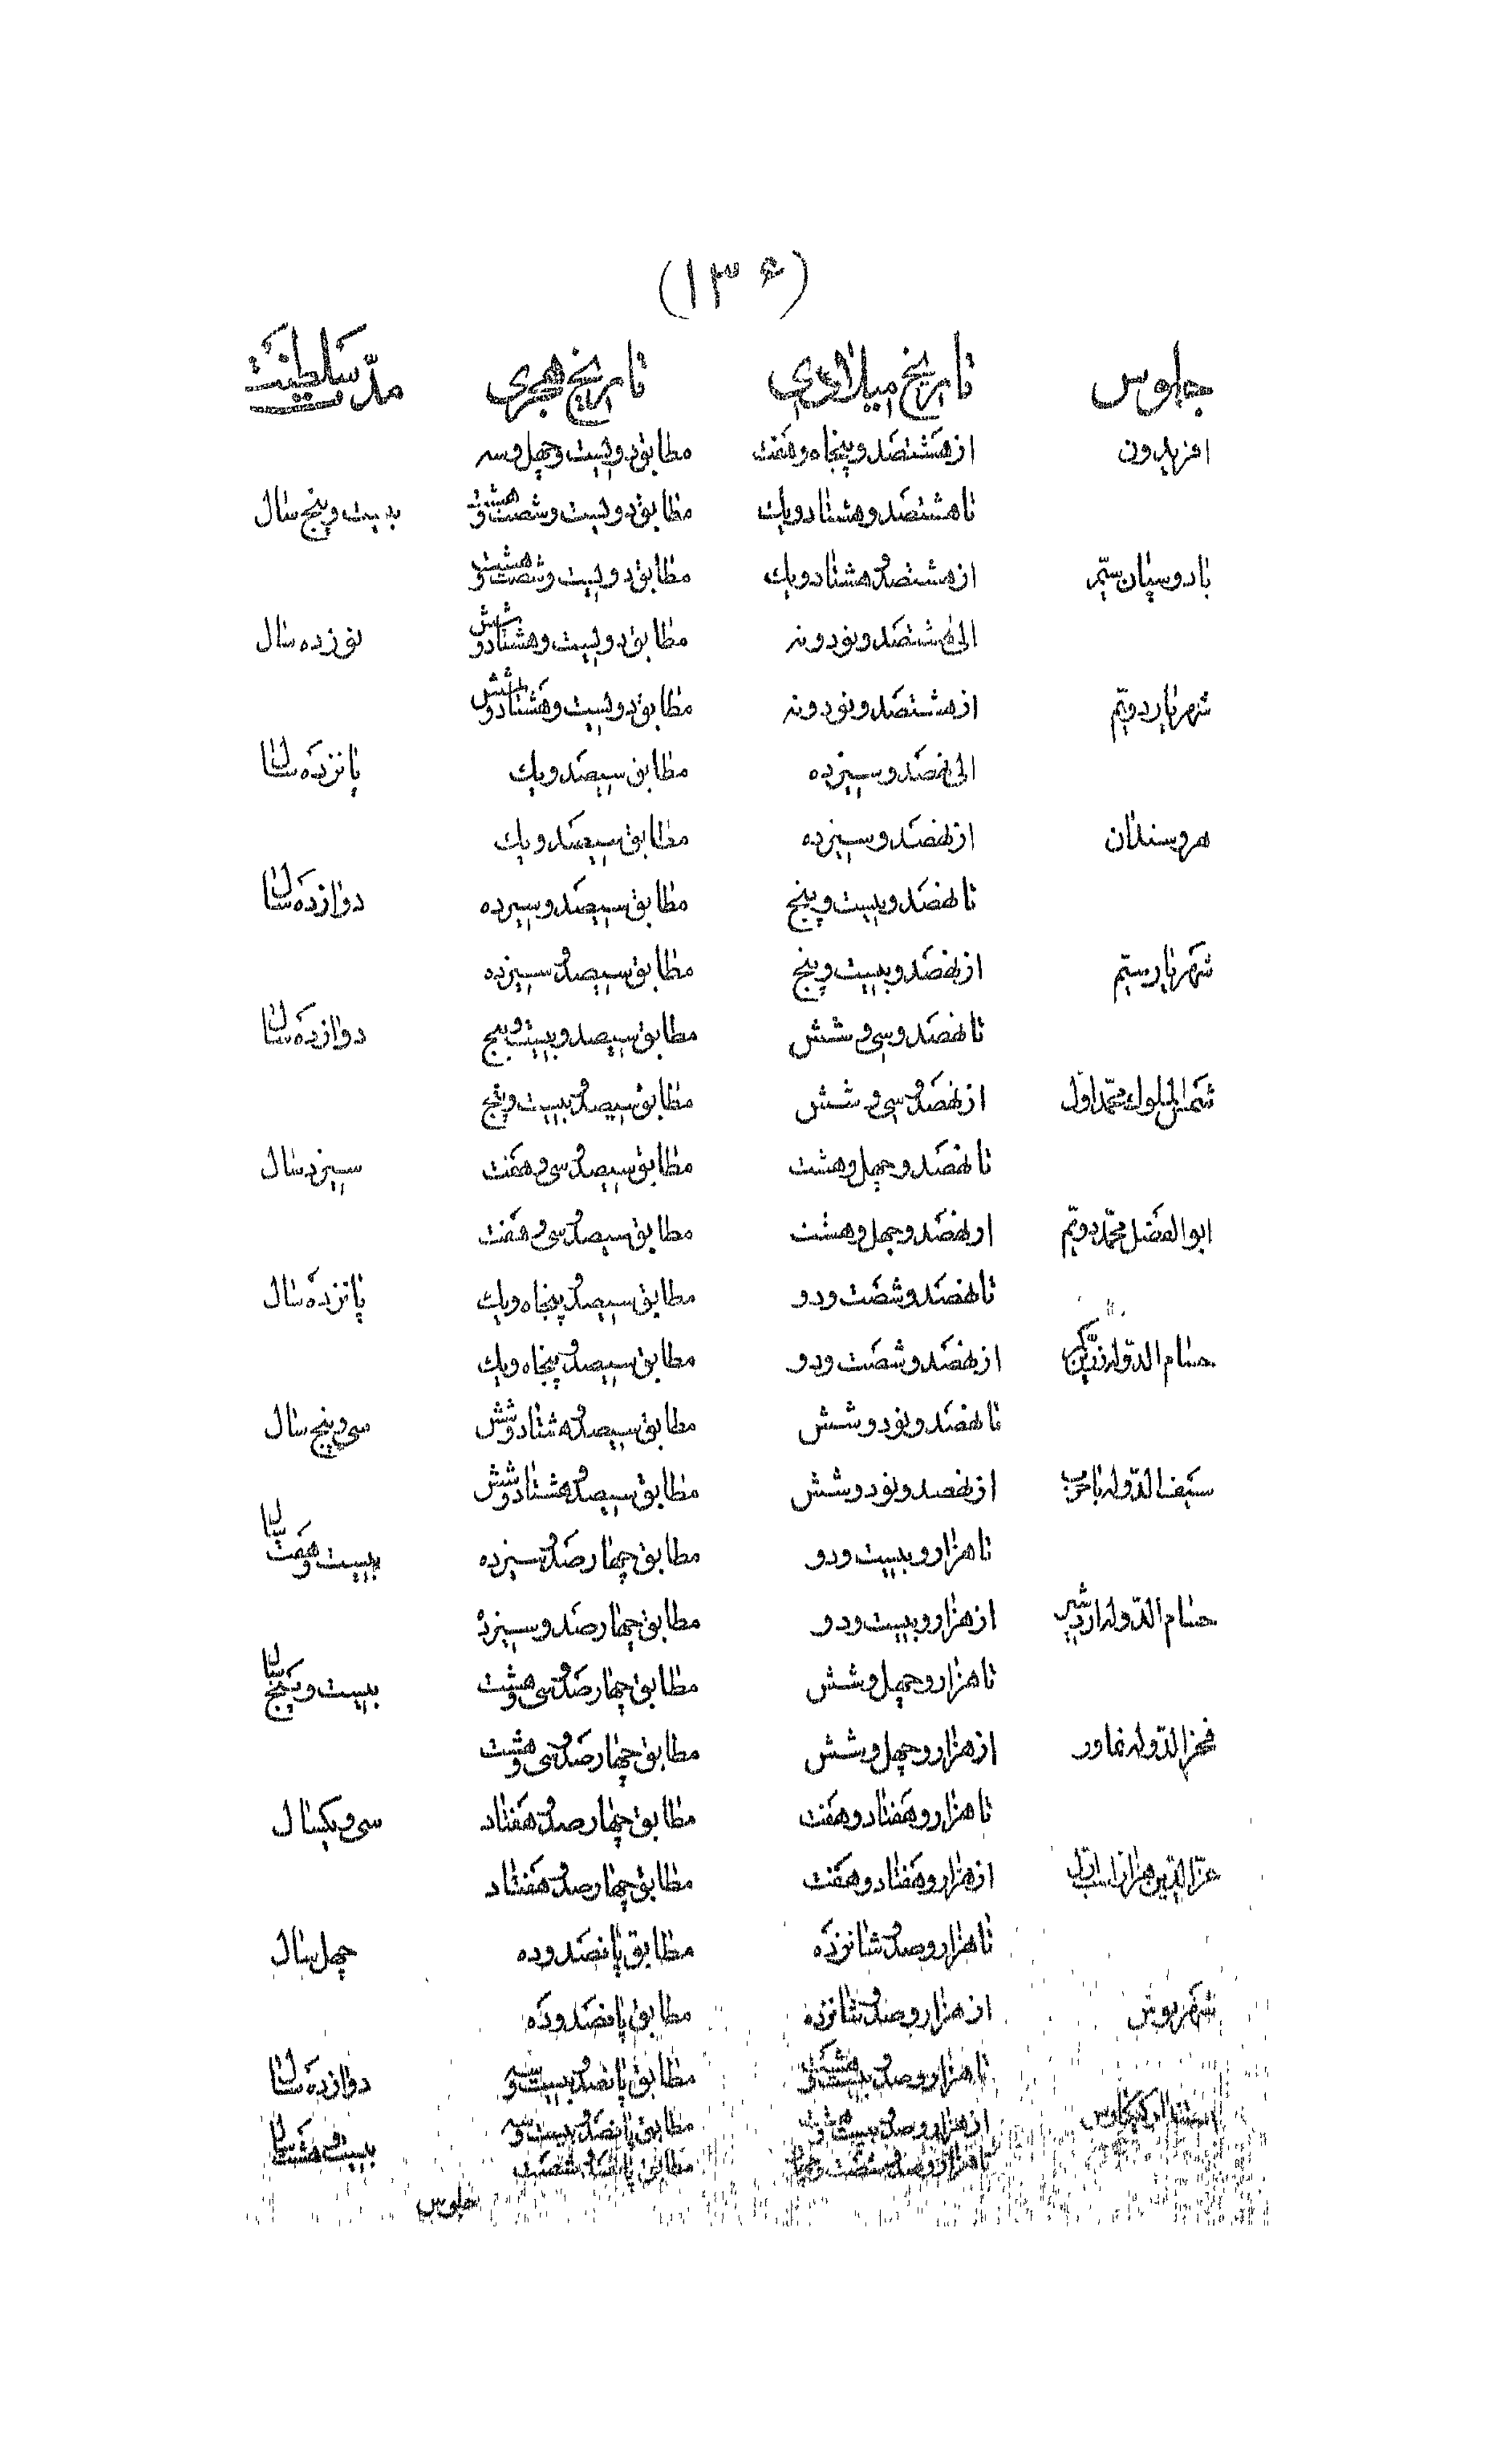 (۱۳۶)
جلوس تاریخ میلادی تاریخ هجری مدّت سلطنت
افریدون از هشتصد و پنجاه و هفت مطابق دویست و چهل و سه
تا هشتصد و هشتاد و یک مطابق دویست و شصت و هشت بیست و پنج سال
بادوسپان سیّم از هشتصد و هشتاد و یک مطابق دویست و شصت و هشت
الی هشتصد و نود و نه مطابق دویست و هشتاد و شش نوزده سال
شهریار دویّم از هشتصد و نود و نه مطابق دویست و هشتاد و شش
الی نهصد و سیزده مطابق سیصد و یک پانزده سال
هروسندان از نهصد و سیزده مطابق سیصد و یک
تا نهصد و بیست و پنج مطابق سیصد و سیزده دوازده سال
شهریار سیّم از نهصد و بیست و پنج مطابق سیصد و سیزده
تا نهصد و سی و شش مطابق سیصد و بیست و پنج دوازده سال
شمس الملوک محمّد اوّل از نهصد و سی و شش مطابق سیصد و بیست و پنج
تا نهصد و چهل و هشت مطابق سیصد و سی و هفت سیزده سال
ابوالفضل محمّد دویّم از نهصد و چهل و هشت مطابق سیصد و سی و هفت
تا نهصد و شصت و دو مطابق سیصد و پنجاه و یک پانزده سال
حسام الدّوله زرّین کمر از نهصد و شصت و دو مطابق سیصد و پنجاه و یک
تا نهصد و نود و شش مطابق سیصد و هشتاد و شش سی و پنج سال
سیف الدّوله باحرب از نهصد و نود و شش مطابق سیصد و هشتاد و شش
تا هزار و بیست و دو مطابق چهار صد و سیزده بیست و هفت سال
حسام الدّوله اردشیر از هزار و بیست و دو مطابق چهار صد و سیزده
تا هزار و چهل و شش مطابق چهار صد و سی و هشت بیست و پنج سال
فخر الدّوله نماور از هزار و چهل و شش مطابق چهار صد و سی و هشت
تا هزار و هفتاد و هفت مطابق چهار صد و هفتاد سی و یکسال
عزّ الدّین هزاراسب اوّل از هزار و هفتاد و هفت مطابق چهار صد و هفتاد
تا هزار و صد و شانزده مطابق پانصد و ده چهل سال
شهرنوش از هزار و صد و شانزده مطابق پانصد و ده
تا هزار و صد و بیست و هشت مطابق پانصد و بیست و سه دوازده سال
استندار کیکاوس از هزار و صد و بیست و هشت مطابق پانصد و بیست و سه
تا هزار و صد و شصت و چهار مطابق پانصد و شصت بیست و هشت سال
جلوس